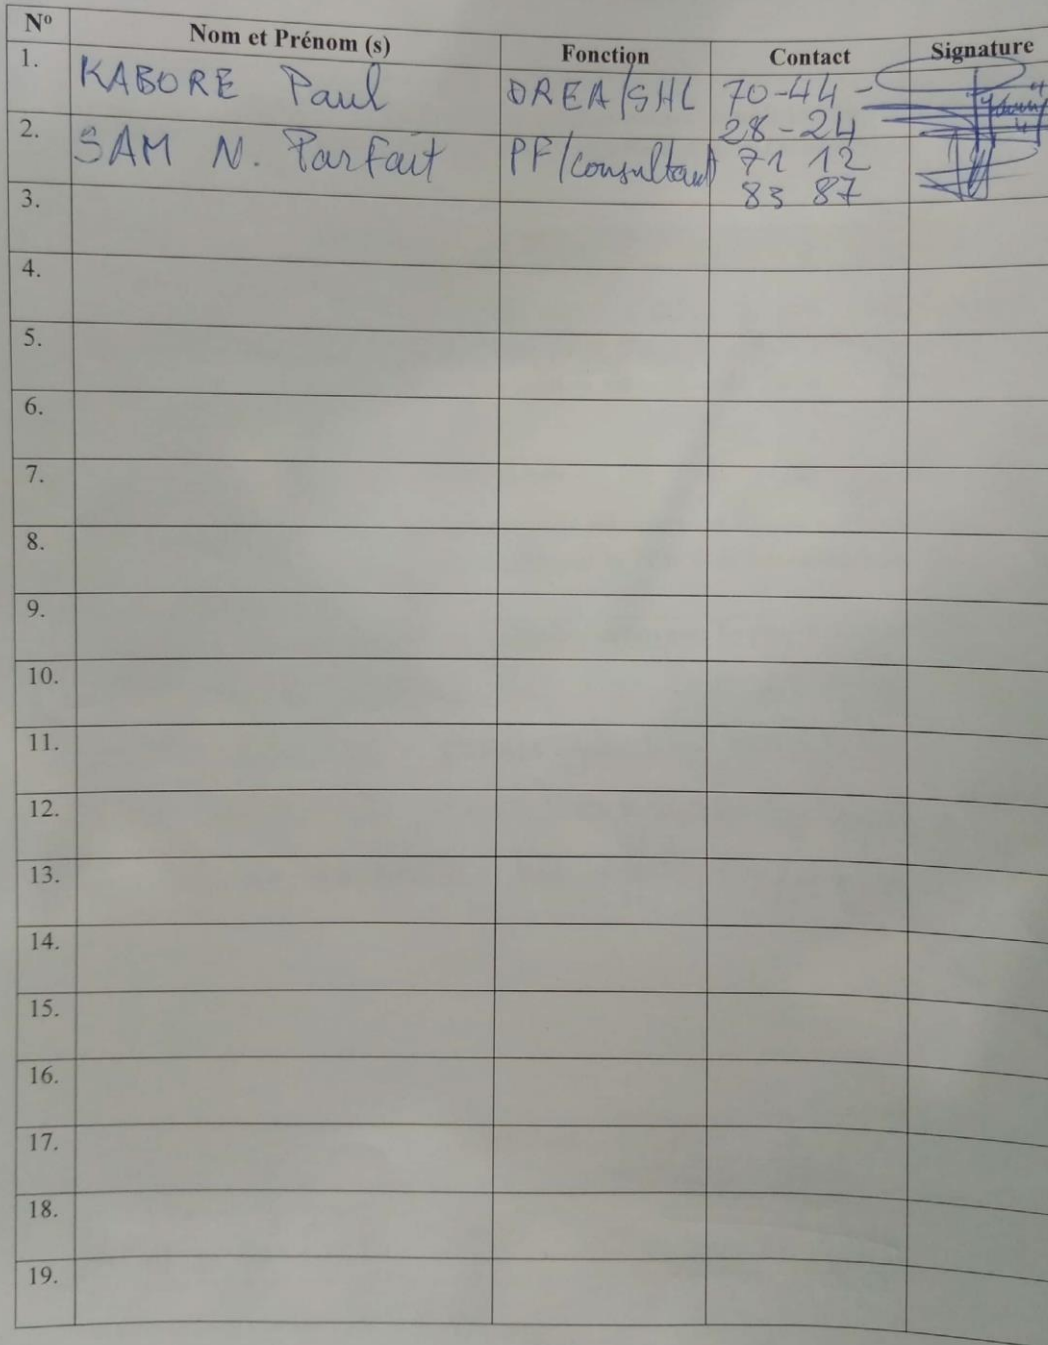 Nº Nom et Prénom (s) Fonction Contact Signature
1. KABORE Paul DREA/SHL 70-44-
28-24
2. SAM N. Parfait PF/consultant 71 12
83 87
3.
4.
5.
6.
7.
8.
9.
10.
11.
12.
13.
14.
15.
16.
17.
18.
19.